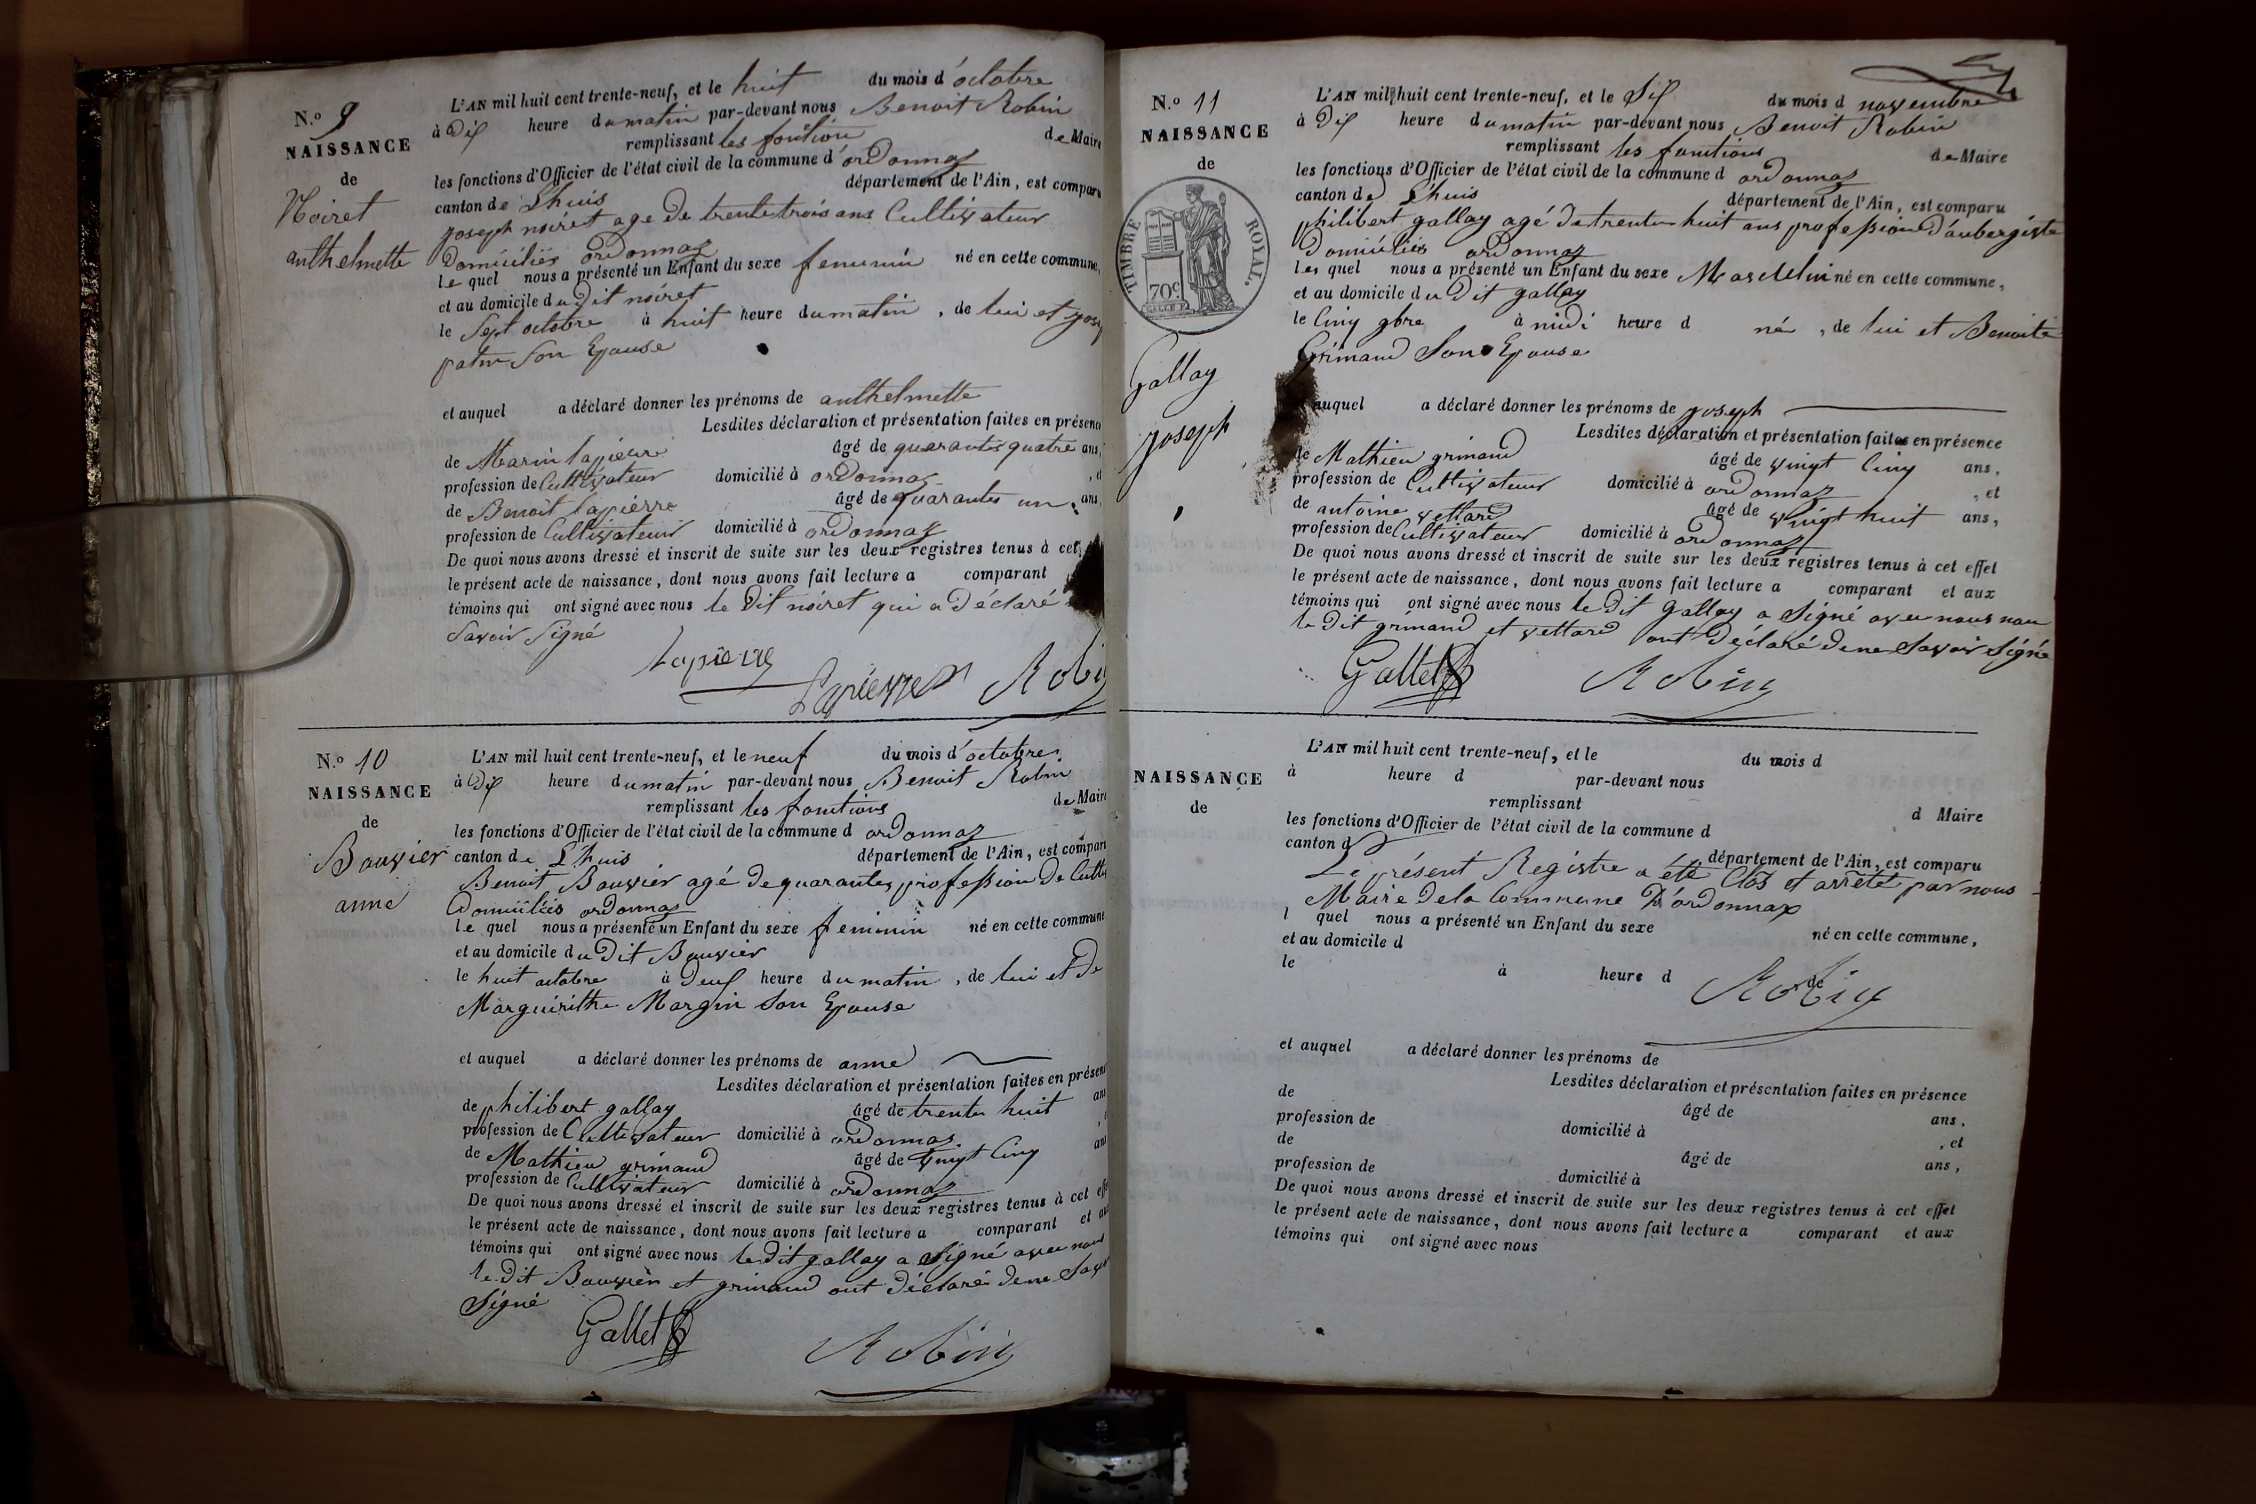 N.o 9
NAISSANCE
de
Noiret
anthelmette
L'AN mil huit cent trente-neuf, et le huit du mois d'octobre
à Dix heure du matin par-devant nous Benoit Robin
remplissant les fonction de Maire
les fonctions d'Officier de l'état civil de la commune d'ordonnaz
canton de L'huis département de l'Ain, est comparu
joseph noiret age de trente trois ans Cultivateur
Domiciliés ordonnaz
le quel nous a présenté un Enfant du sexe femenin né en cette commune,
et au domicile du Dit noiret
le Sept octobre à huit heure du matin, de lui et
son Epouse
et auquel a déclaré donner les prénoms de anthelmette
Lesdites déclaration et présentation faites en présence
de Marin lapierre âgé de quarantes quatre ans,
profession de Cultivateur domicilié à ordonnaz, et
de Benoit lapierre âgé de quarantes un ans,
profession de Cultivateur domicilié à ordonnaz
De quoi nous avons dressé et inscrit de suite sur les deux registres tenus à cet
le présent acte de naissance, dont nous avons fait lecture a comparant
témoins qui ont signé avec nous le Dit noiret qui a Déclaré
Savoir Signé
Lapierre
Lapierre Robin
N.o 10
NAISSANCE
de
Bouvier
anne
L'AN mil huit cent trente-neuf, et le neuf du mois d'octobre
à Dix heure du matin par-devant nous Benoit Robin
remplissant les fonctions de Maire
les fonctions d'Officier de l'état civil de la commune d ordonnaz
canton de L'huis département de l'Ain, est compar
Benoit Bouvier agé de quarantes, profession de Cult
Domiciliés ordonnaz
le quel nous a présenté un Enfant du sexe feminin né en cette commune
et au domicile du Dit Bouvier
le huit octobre à Deux heure du matin, de lui et De
Marguirithe Margin Son Epouse
et auquel a déclaré donner les prénoms de anne
Lesdites déclaration et présentation faites en présen
de philibert gallay âgé de trente huit ans
profession de Cultivateur domicilié à ordonnaz
de Mathieu grimand âgé de vingt Cinq ans
profession de Cultivateur domicilié à ordonnaz
De quoi nous avons dressé et inscrit de suite sur les deux registres tenus à cet effe
le présent acte de naissance, dont nous avons fait lecture a comparant et au
témoins qui ont signé avec nous le dit gallay a Signé avec nous
le Dit Bouvier et grimand ont Déclaré de ne Savoir
Signé
Gallet Robin
N.o 11
NAISSANCE
de
TIMBRE ROYAL.
70c
Gallay
joseph
L'AN mil huit cent trente-neuf, et le Six du mois d novembre
à Dix heure du matin par-devant nous Benoit Robin
remplissant les fonctions de Maire
les fonctions d'Officier de l'état civil de la commune d ordonnaz
canton de L'huis département de l'Ain, est comparu
philibert gallay agé de trente huit ans profession D'aubergiste
Domiciliés ordonnaz
les quel nous a présenté un Enfant du sexe Masculin né en cette commune,
et au domicile du Dit gallay
le Cinq 9bre à midi heure d né, de lui et Benoite
Grimand Son Epouse
auquel a déclaré donner les prénoms de joseph
Lesdites déclaration et présentation faites en présence
de Mathieu grimand âgé de vingt Cinq ans,
profession de Cultivateur domicilié à ordonnaz, et
de antoine vettard âgé de vingt huit ans,
profession de Cultivateur domicilié à ordonnaz
De quoi nous avons dressé et inscrit de suite sur les deux registres tenus à cet effet
le présent acte de naissance, dont nous avons fait lecture a comparant et aux
témoins qui ont signé avec nous le Dit Gallay a Signé avec nous
le Dit grimand et vettard ont Déclaré de ne Savoir Signé
Gallet Robin
NAISSANCE
de
L'AN mil huit cent trente-neuf, et le du mois d
à heure d par-devant nous
remplissant d Maire
les fonctions d'Officier de l'état civil de la commune d
canton d département de l'Ain, est comparu
Le présent Registre a été Clos et arrêté par nous
Maire De la Commune D'ordonnaz
l quel nous a présenté un Enfant du sexe né en cette commune,
et au domicile d
le à heure d de
Robin
et auquel a déclaré donner les prénoms de
Lesdites déclaration et présentation faites en présence
de âgé de ans,
profession de domicilié à , et
de âgé de ans,
profession de domicilié à
De quoi nous avons dressé et inscrit de suite sur les deux registres tenus à cet effet
le présent acte de naissance, dont nous avons fait lecture a comparant et aux
témoins qui ont signé avec nous